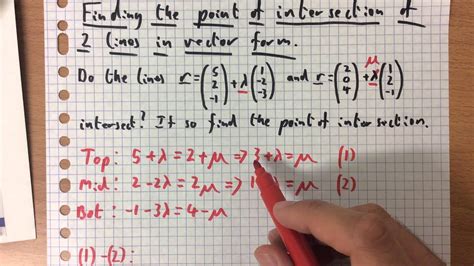 Finding the point of intersection of
2 lines in vector form.
Do the lines r = (5 2 -1) + λ (1 -2 -3) and r = (2 0 4) + μ (1 2 -1)
intersect? If so find the point of intersection.
Top: 5 + λ = 2 + μ ⇒ 3 + λ = μ (1)
Mid: 2 - 2λ = 2μ ⇒ 1 = μ (2)
Bot: -1 - 3λ = 4 - μ
(1) - (2):